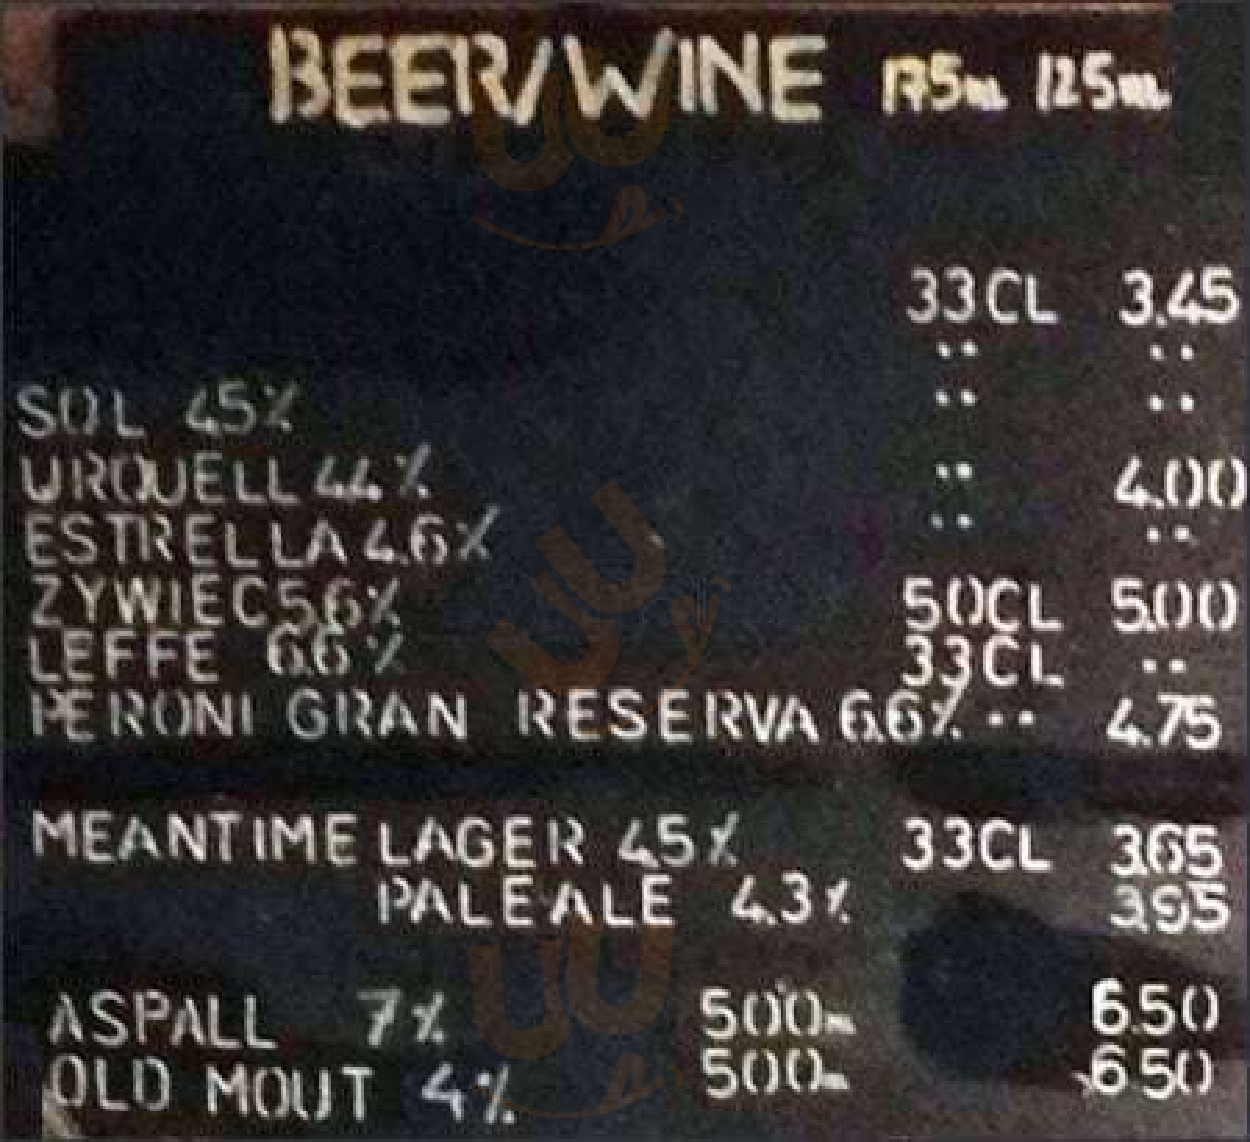 BEER/WINE 175m 125m
33CL 3.45
·· ··
SOL 4.5% ·· ··
URQUELL 4.4% ·· 4.00
ESTRELLA 4.6% ·· ··
ZYWIEC 5.6% 50CL 5.00
LEFFE 6.6% 33CL ··
PERONI GRAN RESERVA 6.6% ·· 4.75
MEANTIME LAGER 4.5% 33CL 3.65
PALE ALE 4.3% 3.95
ASPALL 7% 500m 6.50
OLD MOUT 4% 500m 6.50